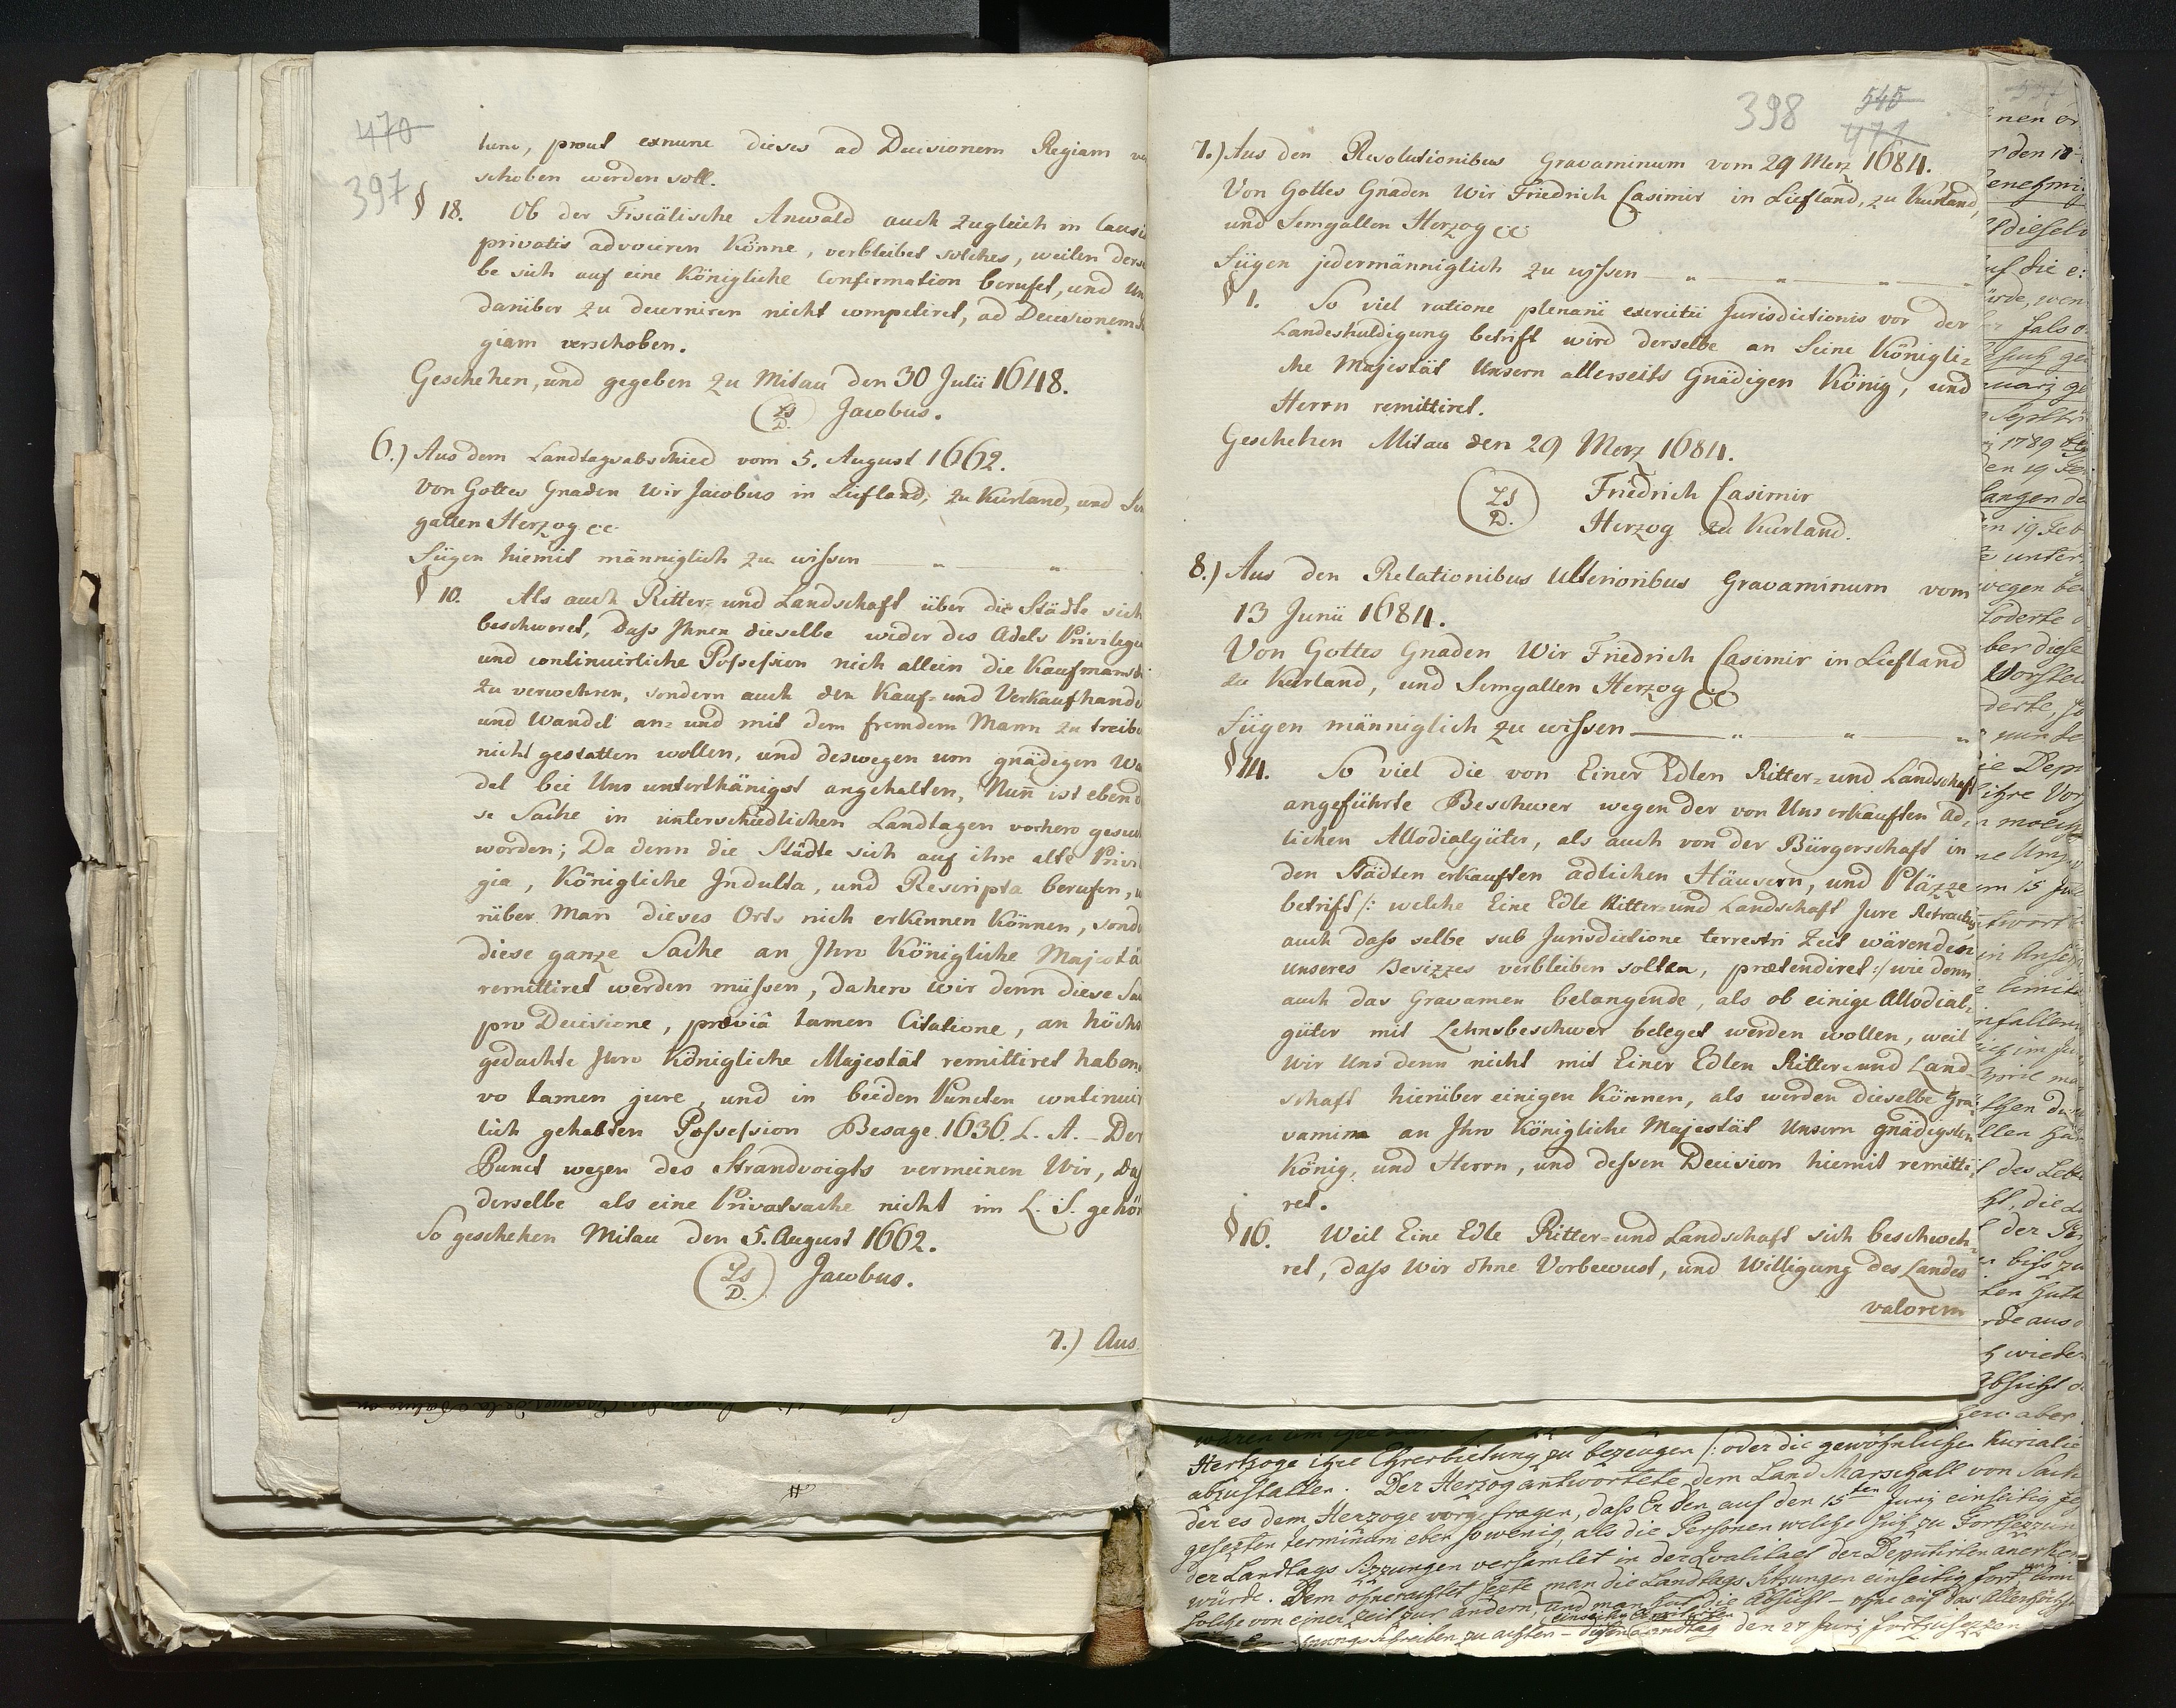 470
397
tunc, prout exnunc dieses ad Decisionem Regiam ver
schoben werden soll.
§ 18. Ob der Fiscälische Anwald auch zugleich in Causis
privatis advociren Könne, verbleibet solches, weilen dersel
be sich auf eine Königliche Confirmation berufet, und Uns
darüber zu decerniren nicht competiret, ad Decisionem Re
giam verschoben.
Geschehen, und gegeben zu Mitau den 30 Julii 1648.
LS
D. Jacobus.
6.) Aus dem Landtagsabschied vom 5. August 1662.
Von Gottes Gnaden Wir Jacobus in Liefland, zu Kurland, und Sem
gallen Herzog
Fügen hiemit männiglich zu wissen " "
§ 10. Als auch Ritter- und Landschaft über die Städte sich
beschweret, dass Ihnen dieselbe wider des Adels Privilegia
und continuirliche Possession nich allein die Kaufmans
zu verwehren, sondern auch den Kauf- und Verkaufhande
und Wandel an- und mit dem fremdem Mann zu treibe
nicht gestatten wollen, und deswegen um gnädigen Wan
del bei Uns unterthänigst angehalten, Nun ist eben d
se Sache in unterschiedlichen Landtagen vorhero gesu
worden; Da denn die Städte sich auf ihre alte Privi
gia, Königliche Indulta, und Rescripta berufen,
rüber Man dieses Orts nich erkennen Können, sonde
diese ganze Sache an Ihro Königliche Majestä
remittiret werden müssen, dahero Wir denn diese Sa
pro Decisione, præviâ tamen Citatione, an höchst
gedachte Ihro Königliche Majestät remittiret haben,
vo tamen jure, und in beiden Puncten continuir
lich gehabten Possession Besage 1636. L. A. - Der
Punct wegen des Strandvoigts vermeinen Wir, daß
derselbe als eine Privatsache nicht im L. S. gehör
So geschehen Mitau den 5. August 1662.
LS
D. Jacobus.
7.) Aus
398 545
471
7.) Aus den Resolutionibus Gravaminum vom 29 Merz 1684.
Von Gottes Gnaden Wir Friedrich Casimir in Liefland, zu Kurland,
und Semgallen Herzog
Fügen jedermänniglich zu wissen — " — " — " —
§ 1. So viel ratione plenarii exercitii Jurisdictionis vor der
Landeshuldigung betrift wird derselbe an Seine Königli=
che Majestät Unsern allerseits Gnädigen König, und
Herrn remittiret.
Geschehen Mitau den 29 Merz 1684.
LS
D. Friedrich Casimir
Herzog zu Kurland.
8.) Aus den Relationibus Ulterioribus Gravaminum vom
13 Junii 1684.
Von Gottes Gnaden Wir Friedrich Casimir in Liefland
zu Kurland, und Semgallen Herzog
Fügen männiglich zu wissen — " — " — "
§ 14. So viel die von Einer Edlen Ritter- und Landschaft
angeführte Beschwer wegen der von Uns erkauften Ad,
lichen Allodialgüter, als auch von der Bürgerschaft in
den Städten erkauften adlichen Häusern, und Pläzze
betrift /: welche Eine Edle Ritter- und Landschaft Jure Retractus
auch daß selbe sub Jurisdictione terrestri Zeit wärenden
unseres Besizzes verbleiben solten, prætendiret :/ wie denn
auch das Gravamen belangende, als ob einige Allodial-
güter mit Lehnsbeschwer beleget werden wollen, weil
Wir Uns denn nicht mit Einer Edlen Ritter- und Land-
schaft hierüber einigen Können, als werden dieselbe Gra-
vamina an Ihro Königliche Majestät Unsern gnädigsten
König, und Herrn, und dessen Decision hiemit remitti-
ret.
§ 16. Weil Eine Edle Ritter- und Landschaft sich beschweh-
ret, daß Wir ohne Vorbewust, und Willigung des Landes
valorem
Hertzoge ihre Ehrerbietung zu bezeugen /: oder die gewöhnlichen Kurialie
abzustatten. Der Herzog antwortete dem Land Marschall von Sack
der es dem Herzoge vorgetragen, dass Er den, auf den 15ten Junj einseitig
gesezten terminum eben so wenig, als die Personen welche sich zu Fortsezzun
der Landtags Sizzungen versamlet in der Qualitaet der Deputirten anerken
würde. Dem ohnerachtet sezte man die Landtags Sizzungen einseitig fort
solche von einer Zeit zur andern, und man hat die Absicht - ohne auf das Allerhöchst
schreiben zu achten - diesen Landtag den 27 Junj fortzusezzen